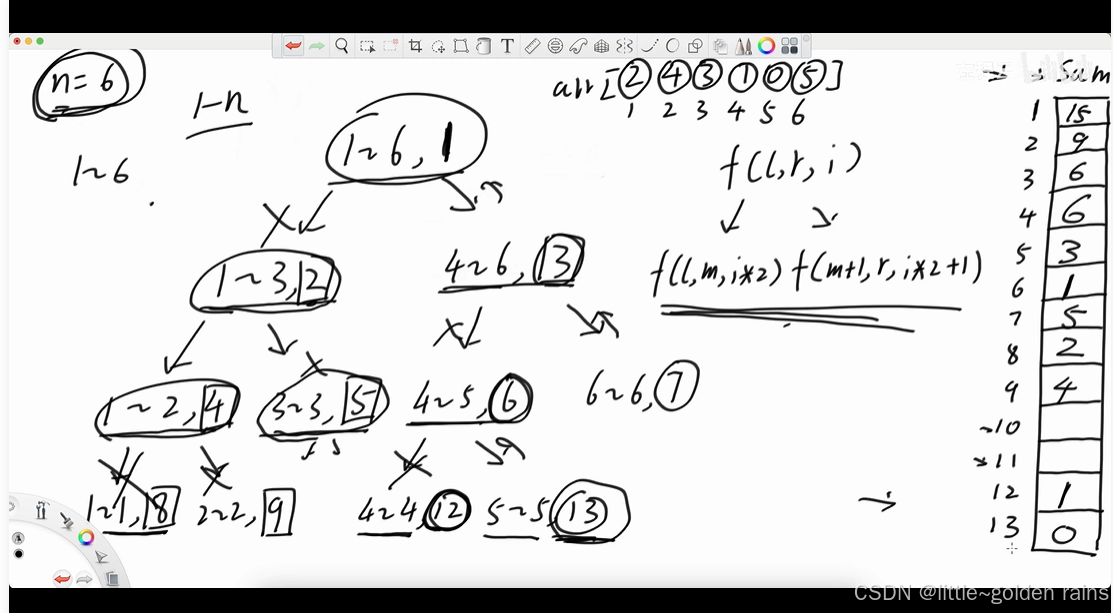 n=6
1-n
1~6
arr[2 4 3 1 0 5]
1 2 3 4 5 6
1~6, 1
f(l,r,i)
f(l,m,i*2) f(m+1,r,i*2+1)
1~3,2
4~6,3
1~2,4
3~3,5
4~5,6
6~6,7
1~1,8
2~2,9
4~4,12
5~5,13
Sum
1 15
2 9
3 6
4 6
5 3
6 1
7 5
8 2
9 4
10
11
12 1
13 0
CSDN @little~golden rains